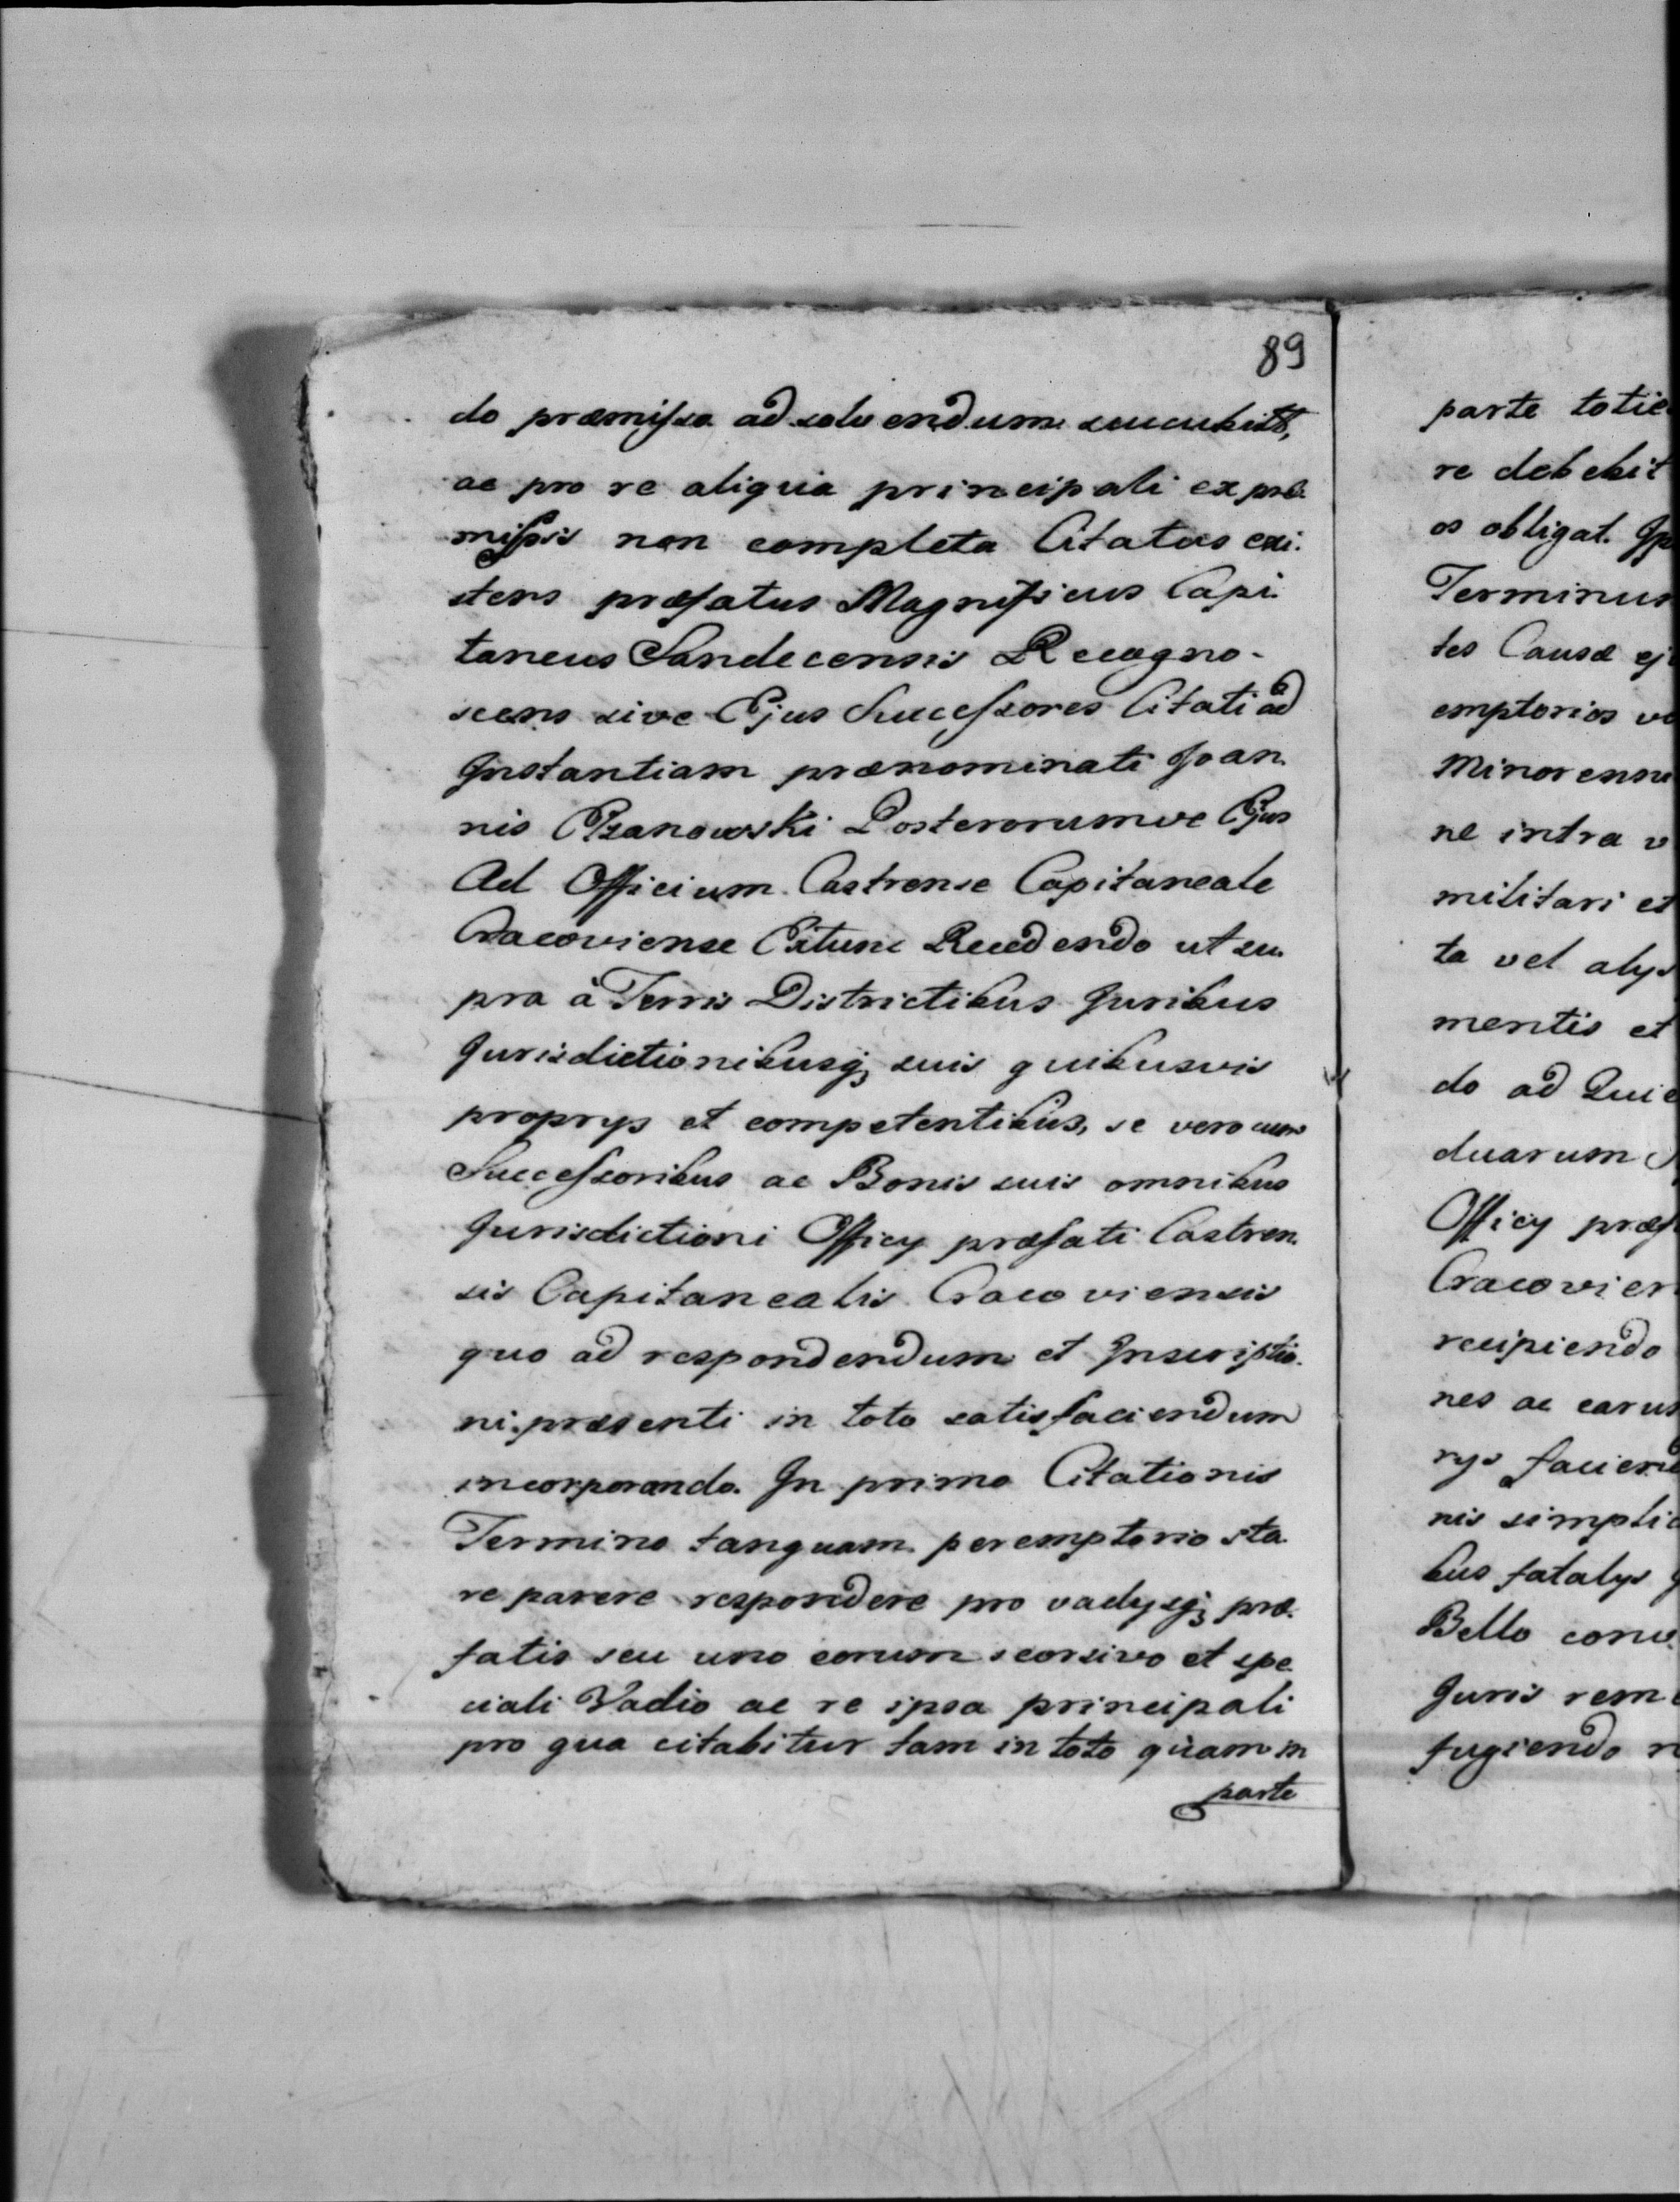 89
do præmissa ad solvendum succubit,
ac pro re aliqua principali ex præ
missis non completa Citatus exi.
stens præfatus Magnificus Capi
taneus Sandecensis Recogno-
scens sive Ejus Successores Citati ad
Instantiam prænominati Joan
nis Posterorumve Ejus
Ad Officium Castrense Capitaneale
Cracoviense Extunc Recedendo ut su
pra à Terris Districtibus Juribus
Jurisdictionibusq; suis quibusvis
proprys et competentibus, se vero cum
Successoribus ac Bonis suis omnibus
Jurisdictioni Officy præfati Castren
sis Capitanealis Cracoviensis
quo ad respondendum et Inscriptio
ni præsenti in toto satisfaciendum
incorporando. In primo Citationis
Termino tanquam peremptorio sta
re parere respondere pro vadysq; præ
fatis seu uno eorum seorsivo et spe
ciali Vadio ac re ipsa principali
pro qua citabitur tam in toto quam in
parte
parte totie
re debebit
os obligat. Ip
Terminus
tes Causæ ej
emptorios vo
Minorenni
ne intra v
militari et
ta vel alys
mentis et
do ad Quie
duarum
Officy præf
Cracovien
recipiendo
nes ac earum
rys faciend
nis simplic
bus fatalys
Bello conv
Juris rem
fugiendo